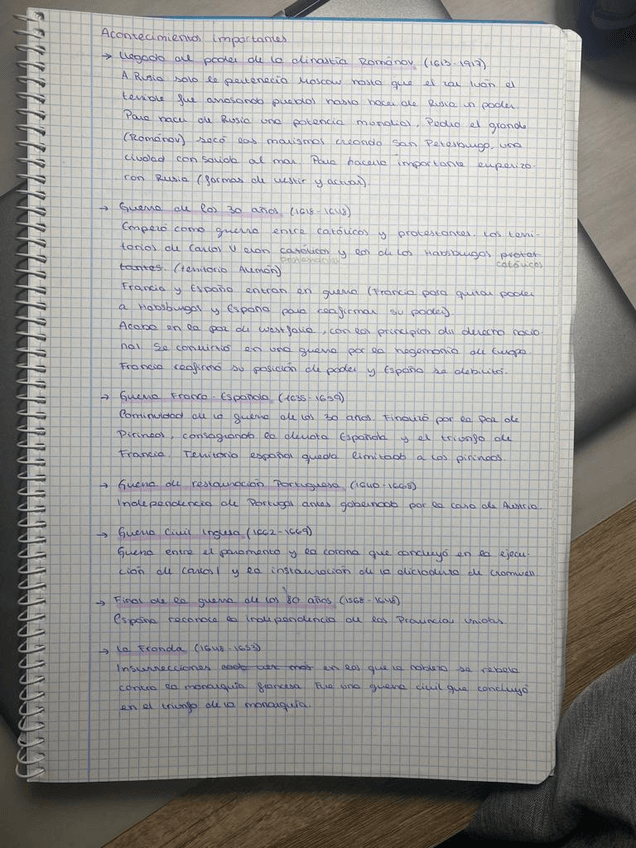 Acontecimientos importantes
→ Llegada al poder de la dinastía Románov (1613-1917)
A Rusia solo le pertenecía Moscow hasta que el zar Iván el
terrible fue anexando pueblos hasta hacer de Rusia un poder.
Para hacer de Rusia una potencia mundial, Pedro el grande
(Románov) secó las marismas creando San Petesburgo, una
ciudad con salida al mar. Para hacerla importante europeizo
con Rusia (formas de vestir y actuar).
→ Guerra de los 30 años (1618-1648)
Empezó como guerra entre católicos y protestantes. Los terri-
torios de Carlos V eran católicos y los de los Habsburgos protes
tantes. (territorio Alemán) católicos
Francia y España entran en guerra (Francia para quitar poder
a Habsburgos y España para reafirmar su poder).
Acaba en la paz de Westfalia, con los principios del derecho nacio-
nal. Se convirtió en una guerra por la hegemonía de Europa.
Francia reafirmó su posición de poder y España se debilitó.
→ Guerra Franco-Española (1635-1659)
Continuidad de la guerra de los 30 años. Finalizó por la Paz de
Pirineos, consagrando la derrota Española y el triunfo de
Francia. Territorio español queda limitado a los pirineos.
→ Guerra de restauración Portuguesa (1640-1668)
Independencia de Portugal antes gobernado por la casa de Austria.
→ Guerra Civil Inglesa (1642-1649)
Guerra entre el parlamento y la corona que concluyó en la ejecu-
ción de Carlos I y la instauración de la dictadura de Cromwell
→ Final de la guerra de los 80 años (1568-1648)
España reconoce la independencia de las Provincias Unidas
→ La Fronda (1648-1653)
Insurrecciones en las que la nobleza se rebela
contra la monarquía francesa. Fue una guerra civil que concluyó
en el triunfo de la monarquía.